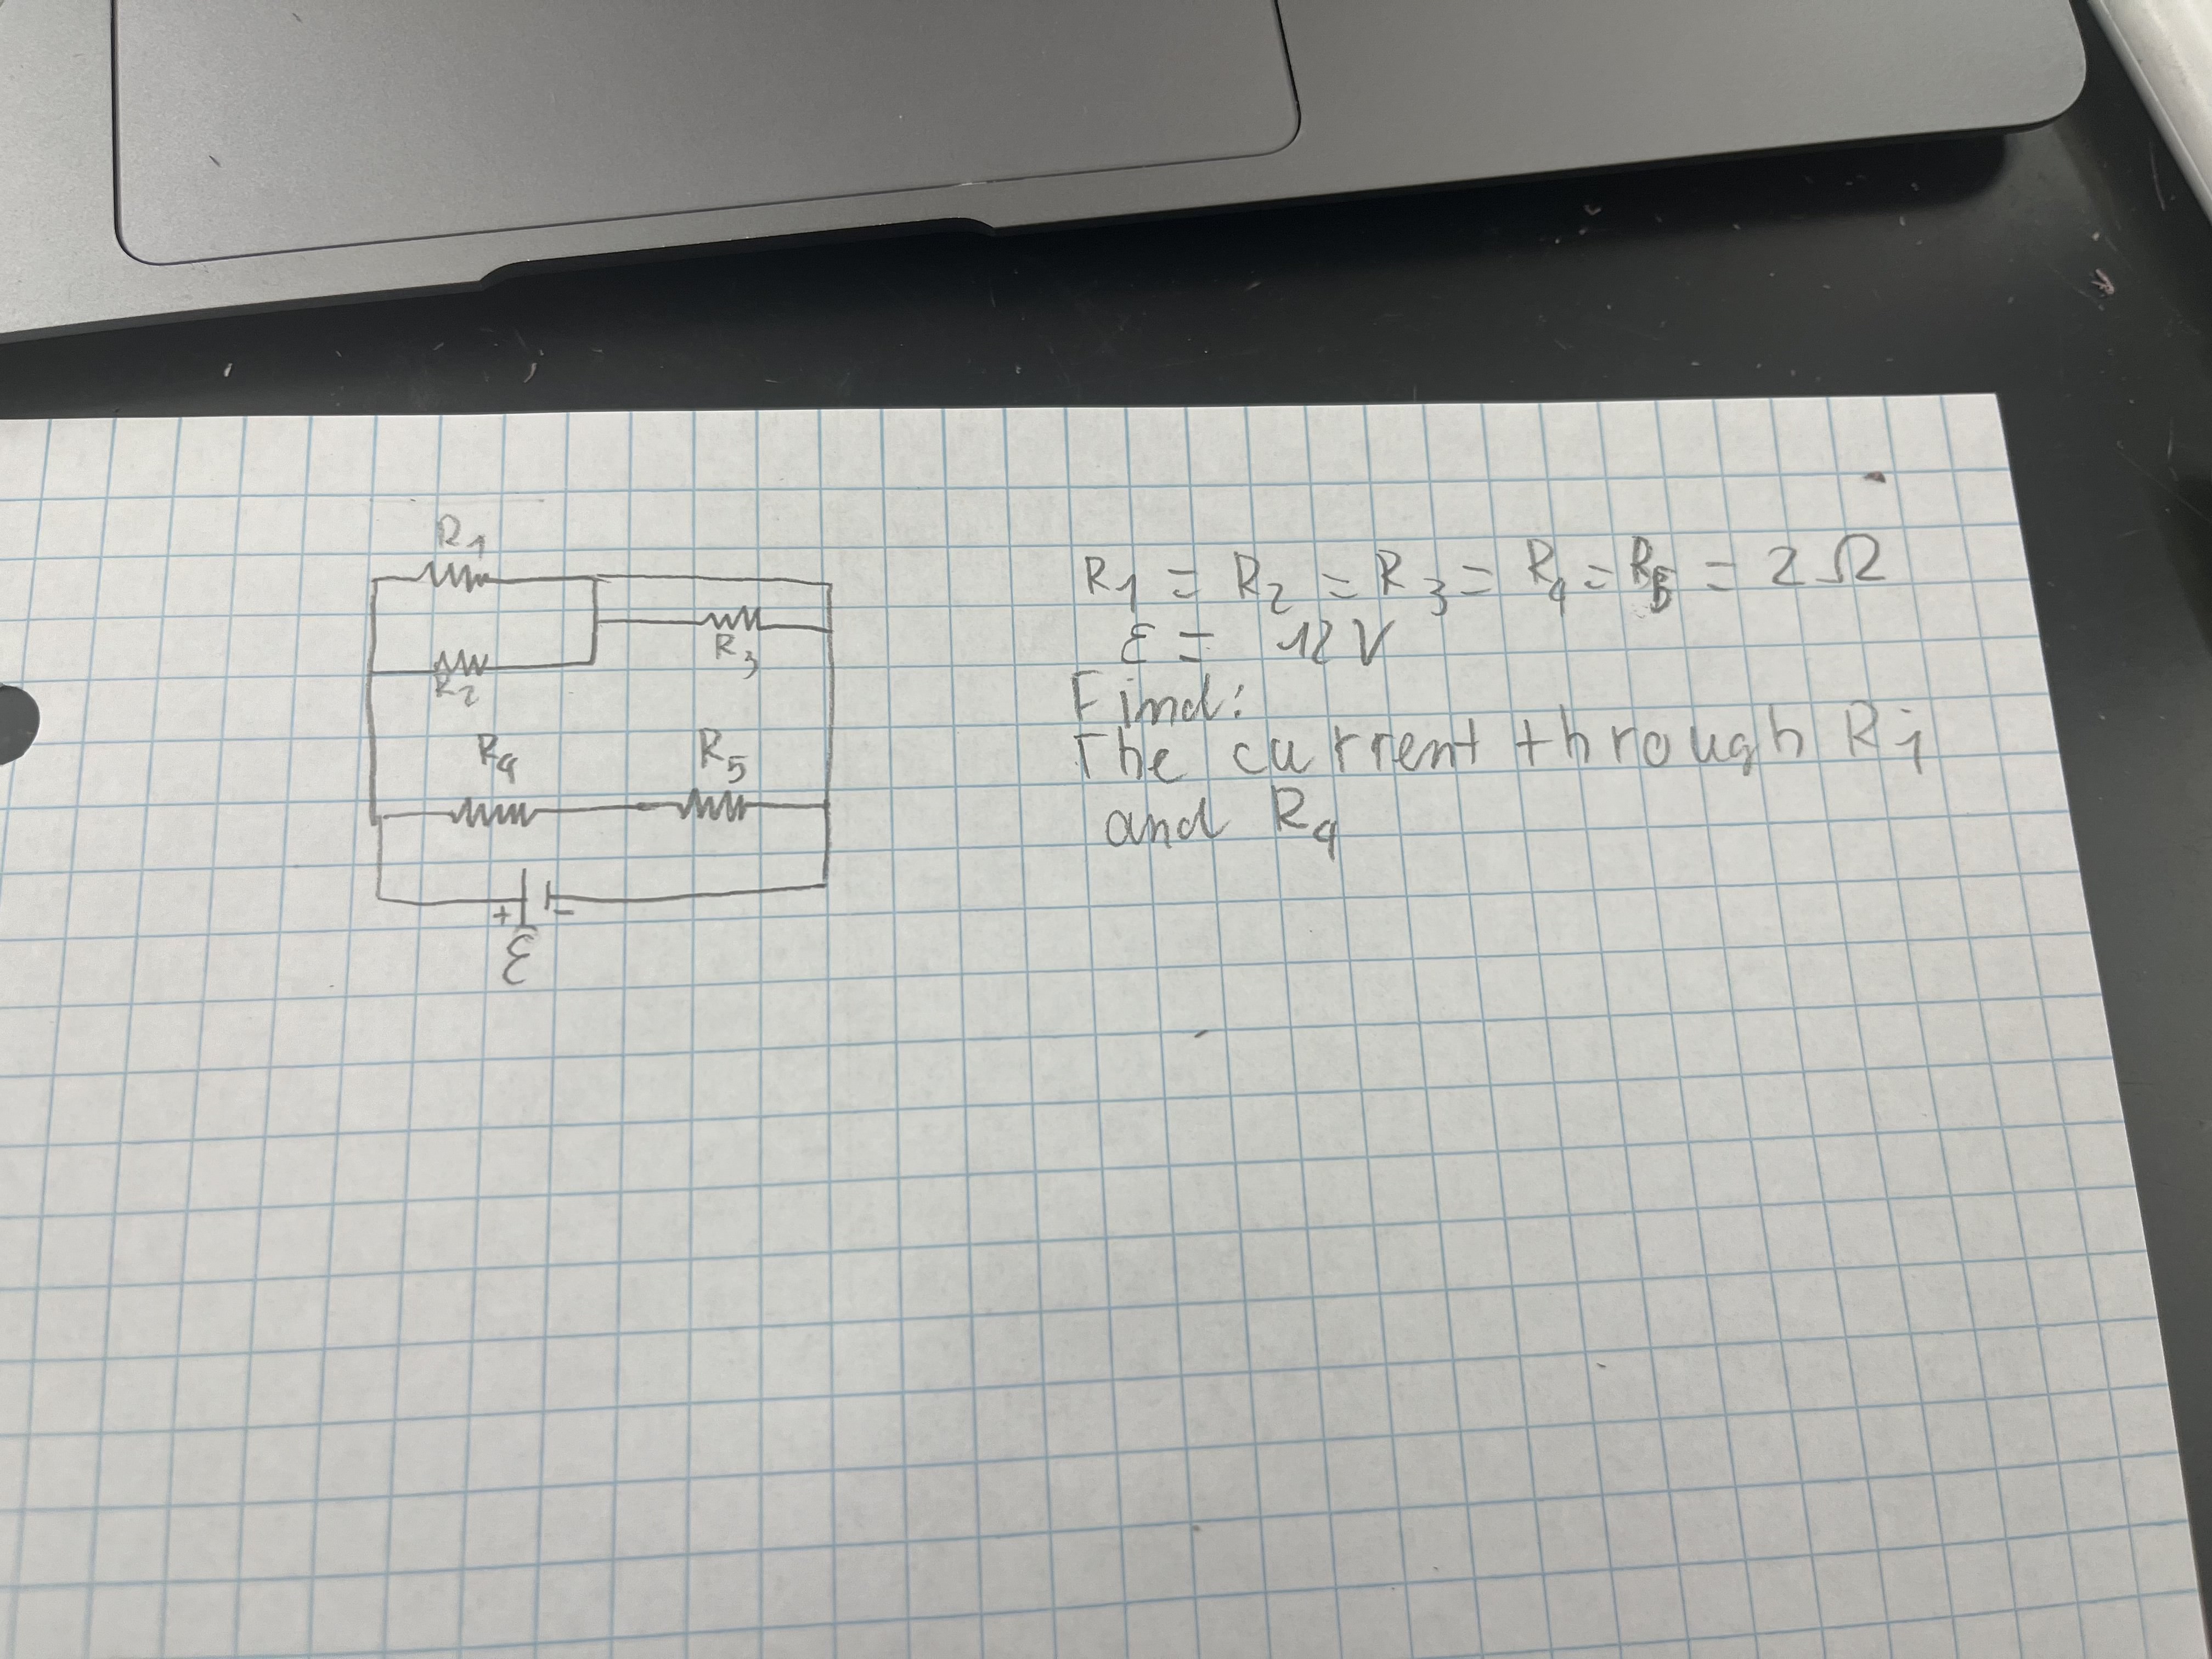 R1
R2
R3
R4
R5
+ -
ε
R1 = R2 = R3 = R4 = R5 = 2 Ω
ε = 12 V
Find:
The current through R1
and R4